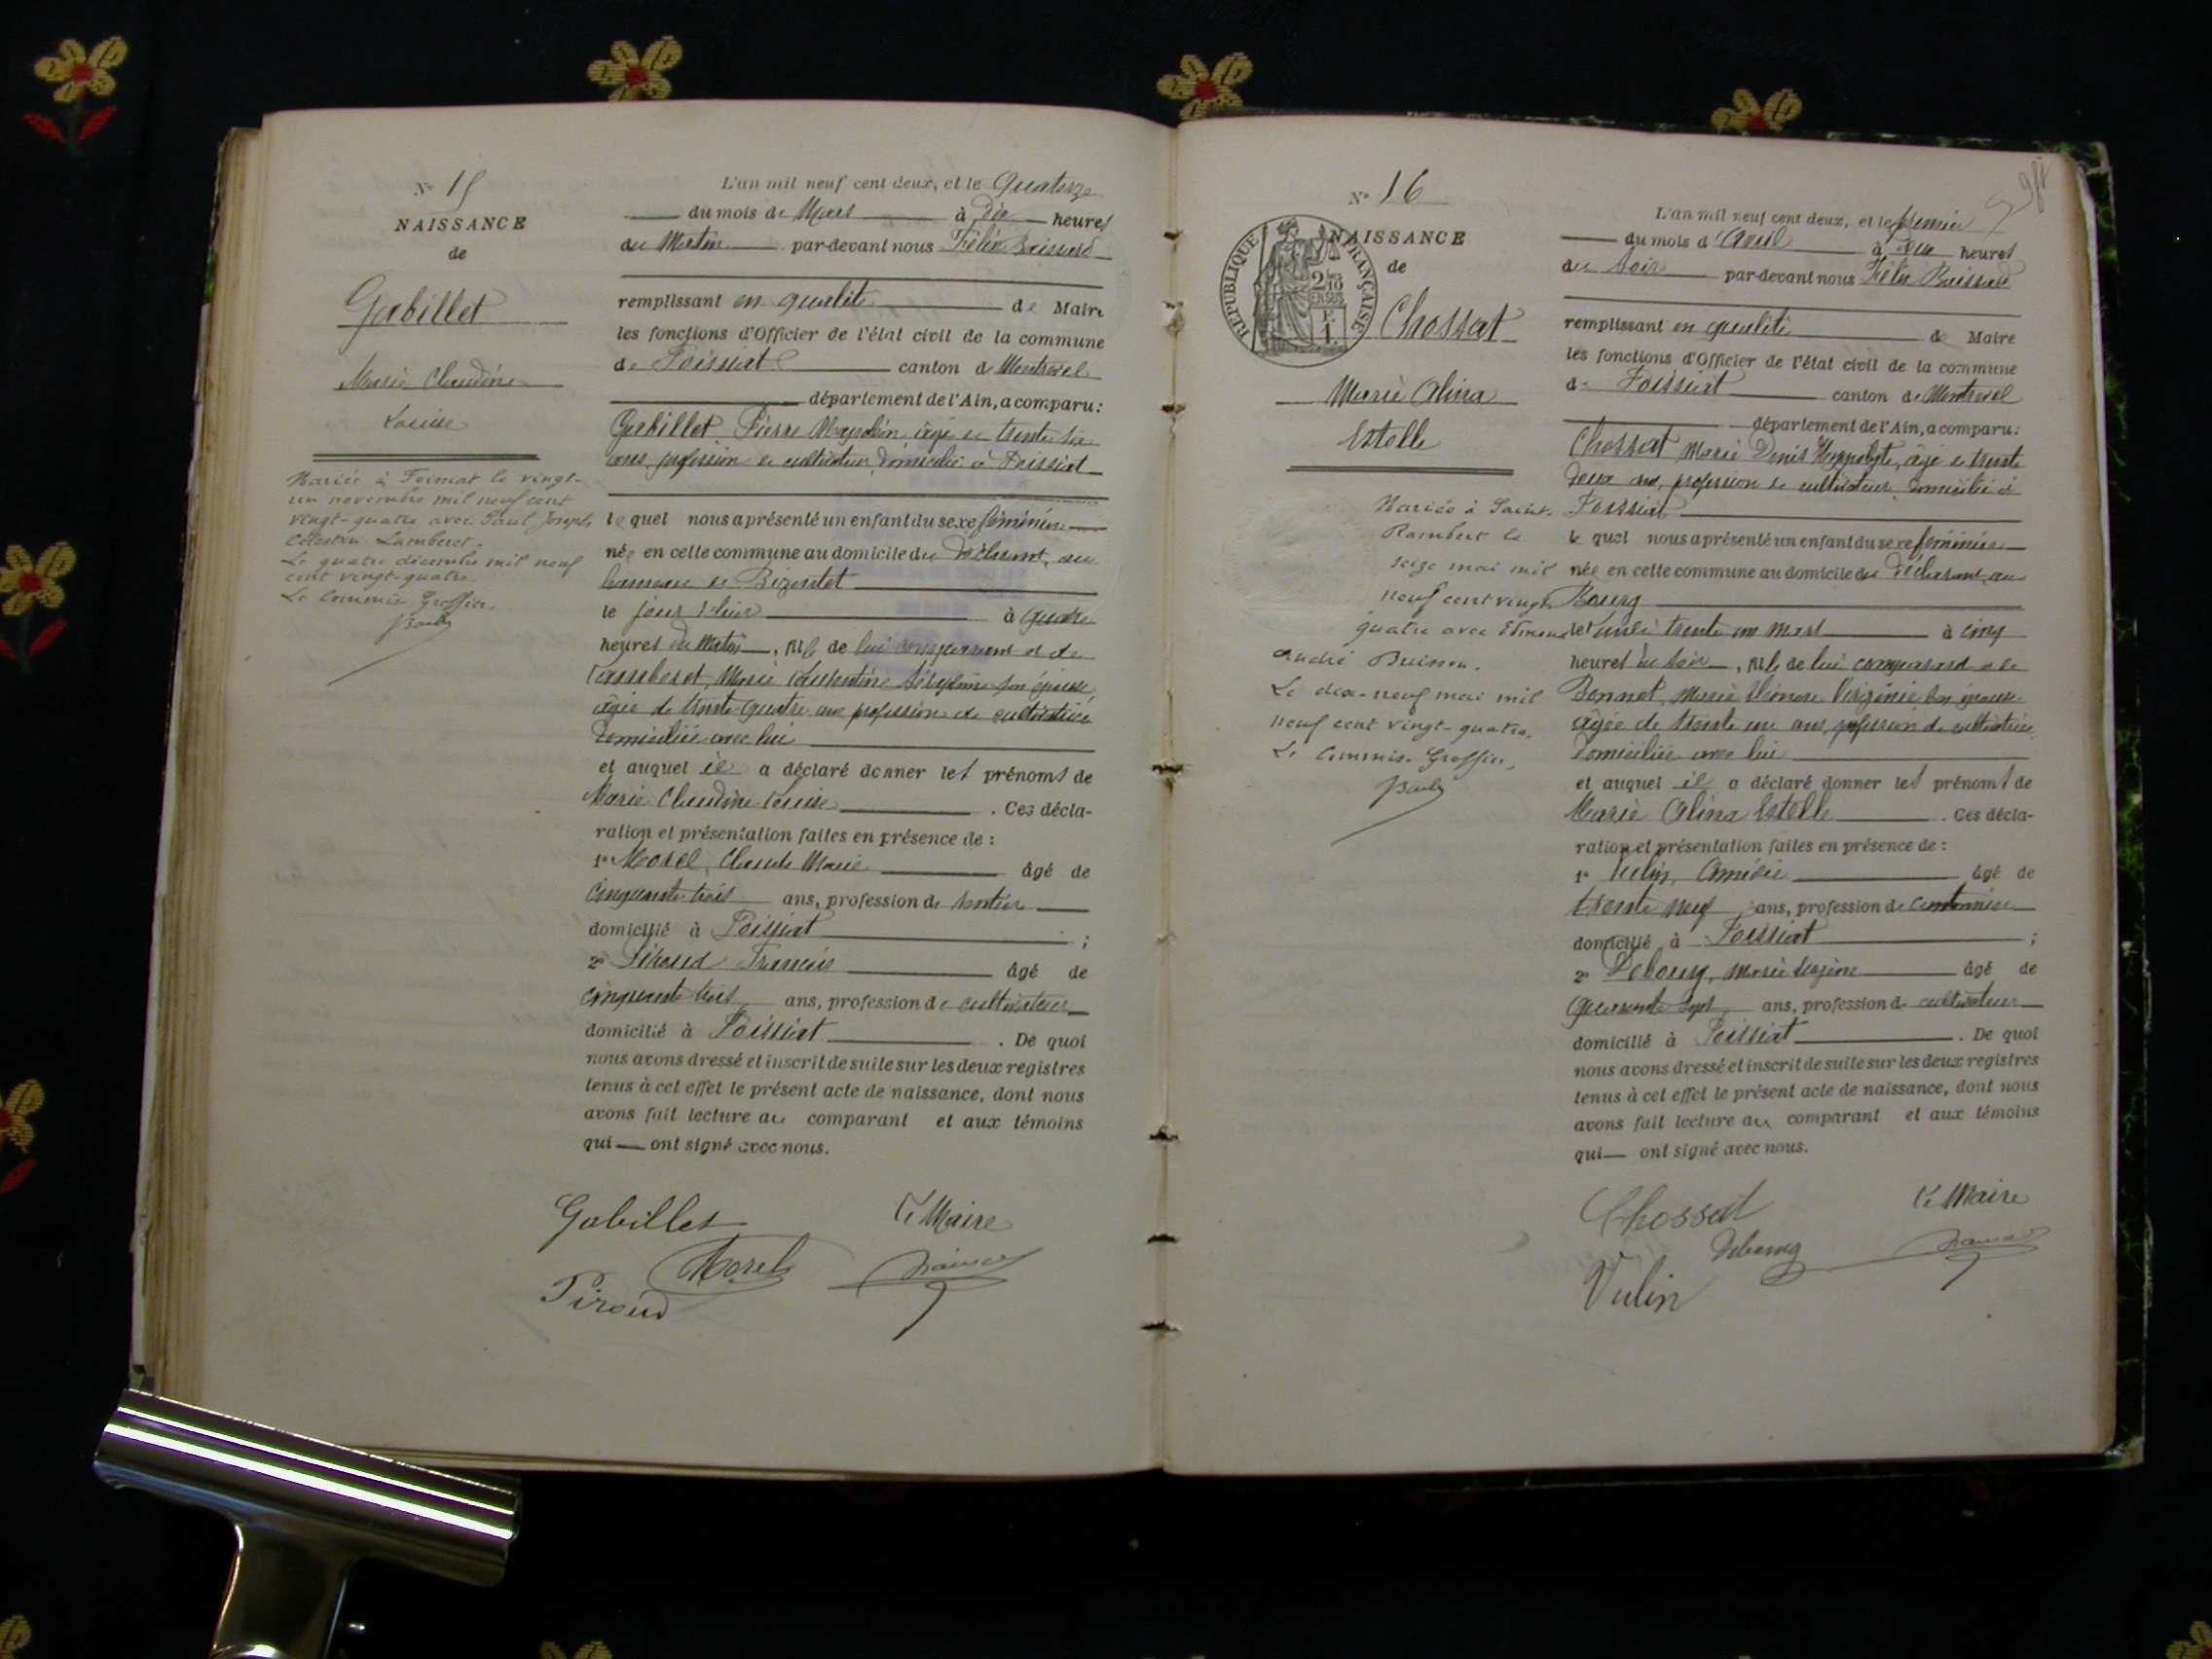 N° 15
NAISSANCE
de
Gabillet
Marie Claudine
Louise
Mariée à Foissiat le vingt-
un novembre mil neuf cent
vingt-quatre avec Paul Joseph
Célestin Lamberet.
Le quatre décembre mil neuf
cent vingt-quatre.
Le Commis Greffier,
L'an mil neuf cent deux, et le Quatorze
du mois de Mars à Dix heures
du Matin par-devant nous Félix Boissard
remplissant en qualité de Maire
les fonctions d'Officier de l'état civil de la commune
de Foissiat canton de Montrevel
département de l'Ain, a comparu:
Gabillet, Pierre Napoléon, âgé de trente six
ans, profession de cultivateur, domicilié à Foissiat
lequel nous a présenté un enfant du sexe féminin
née en cette commune au domicile du déclarant, au
hameau de
le jour d'hier à quatre
heures du Matin, fille de lui comparant et de
Marie son épouse,
âgée de trente quatre ans profession de cultivatrice
domiciliée avec lui
et auquel il a déclaré donner les prénoms de
Marie Claudine Louise. Ces décla-
ration et présentation faites en présence de :
1° Morel, Claude Marie âgé de
cinquante trois ans, profession de rentier
domicilié à Foissiat ;
2° Piroud François âgé de
cinquante trois ans, profession de cultivateur
domicilié à Foissiat. De quoi
nous avons dressé et inscrit de suite sur les deux registres
tenus à cet effet le présent acte de naissance, dont nous
avons fait lecture au comparant et aux témoins
qui ont signé avec nous.
Gabillet Le Maire
Morel
Piroud
N° 16
NAISSANCE
de
REPUBLIQUE FRANÇAISE
2/10
EN SUS
1 F.
Chossat
Marie Alina
Estelle
Mariée à Saint-
Rambert le
seize mai mil
neuf cent vingt
quatre avec Edmond
André Buisson.
Le dix-neuf mai mil
neuf cent vingt-quatre.
Le Commis Greffier,
L'an mil neuf cent deux, et le premier
du mois d'Avril à heures
du soir par-devant nous Félix Boissard
remplissant en qualité de Maire
les fonctions d'Officier de l'état civil de la commune
de Foissiat canton de Montrevel
département de l'Ain, a comparu:
Chossat Marie Denis Hyppolyte, âgé de trente
deux ans, profession de cultivateur, domicilié à
Foissiat
lequel nous a présenté un enfant du sexe féminin
née en cette commune au domicile du déclarant, au
Bourg
le trente un Mars à cinq
heures du soir, fille de lui comparant et de
Bonnet, Marie Virginie son épouse
âgée de trente un ans, profession de cultivatrice
domiciliée avec lui
et auquel il a déclaré donner les prénoms de
Marie Alina Estelle. Ces décla-
ration et présentation faites en présence de :
1° Vulin, Amédée âgé de
trente neuf ans, profession de cantonnier
domicilié à Foissiat ;
2° Debourg, Marie âgé de
quarante sept ans, profession de cultivateur
domicilié à Foissiat. De quoi
nous avons dressé et inscrit de suite sur les deux registres
tenus à cet effet le présent acte de naissance, dont nous
avons fait lecture au comparant et aux témoins
qui ont signé avec nous.
Chossat Le Maire
Debourg
Vulin